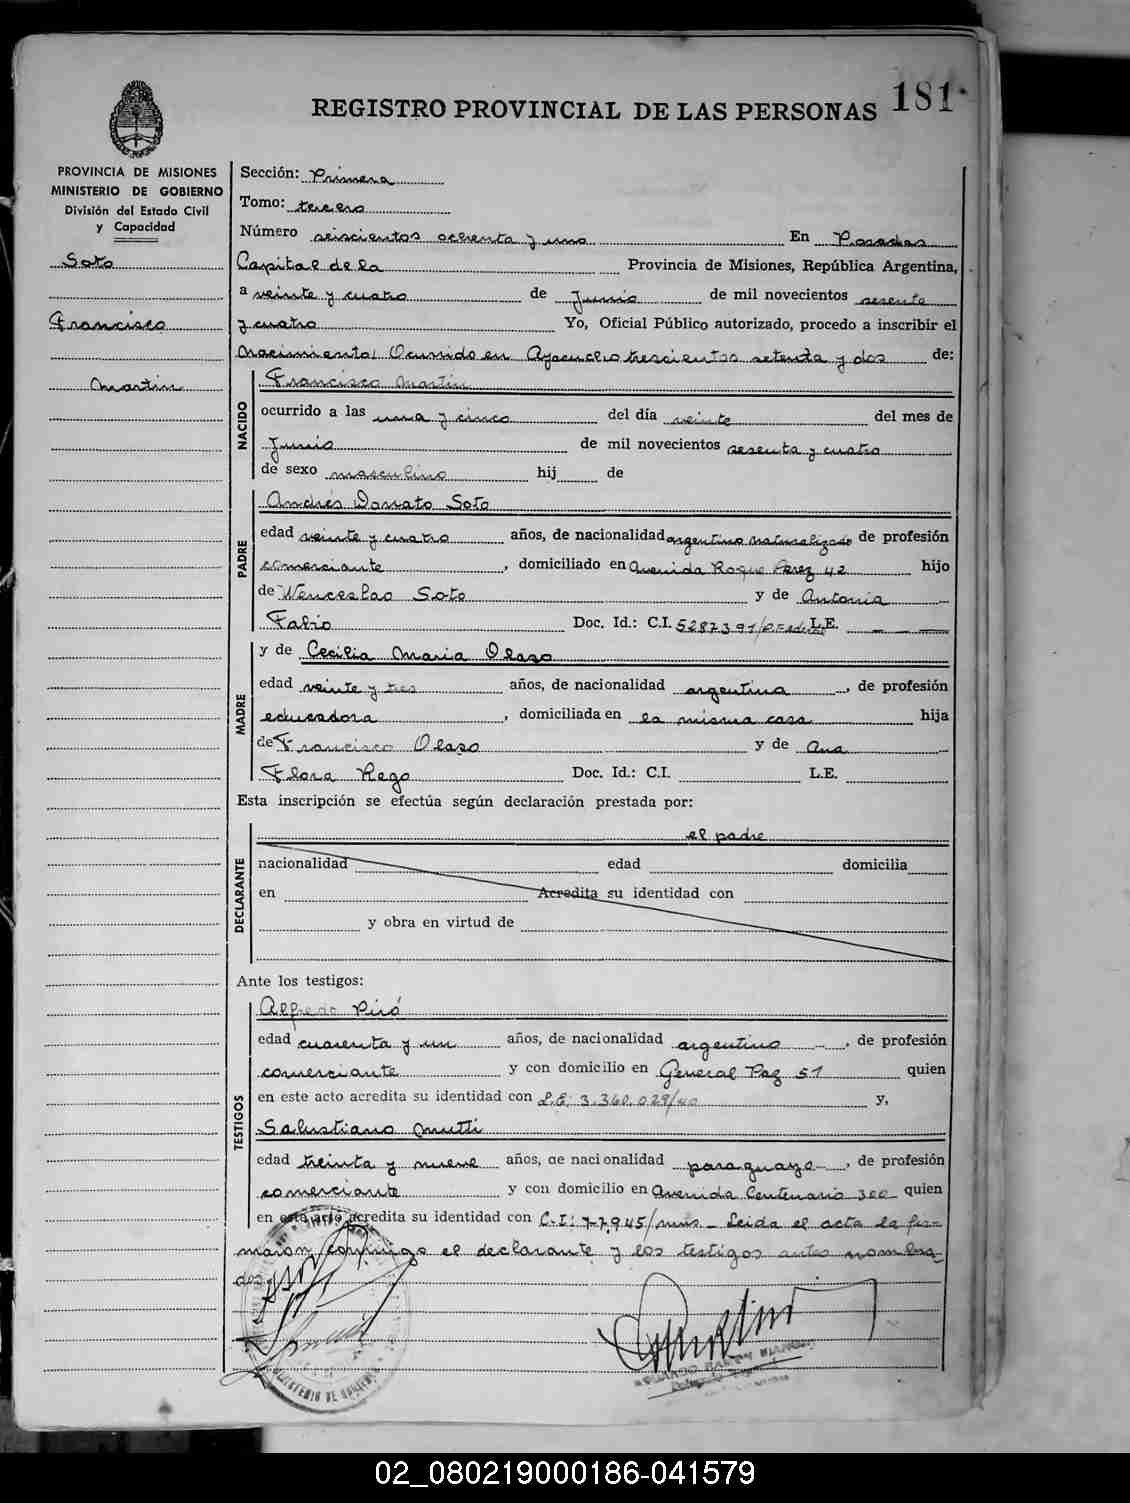 181
REGISTRO PROVINCIAL DE LAS PERSONAS
PROVINCIA DE MISIONES
MINISTERIO DE GOBIERNO
División del Estado Civil
y Capacidad
Soto
Francisco
Martin
Sección: Primera
Tomo: tercero
Número seiscientos ochenta y uno En Posadas
Capital de la Provincia de Misiones, República Argentina,
a veinte y cuatro de Junio de mil novecientos sesenta
y cuatro Yo, Oficial Público autorizado, procedo a inscribir el
Nacimiento, Ocurrido en Ayacucho trescientos setenta y dos de:
NACIDO
Francisco Martin
ocurrido a las una y cinco del día veinte del mes de
Junio de mil novecientos sesenta y cuatro
de sexo masculino hij de
PADRE
Andrés Donato Soto
edad veinte y cuatro años, de nacionalidad argentino naturalizado de profesión
comerciante, domiciliado en Avenida Roque Perez 42 hijo
de Wenceslao Soto y de Antonia
Fabio Doc. Id.: C.I. 5287391/P. Federal L.E.
MADRE
y de Cecilia Maria Olazo
edad veinte y tres años, de nacionalidad argentina, de profesión
educadora, domiciliada en la misma casa hija
de Francisco Olazo y de Ana
Flora Rego Doc. Id.: C.I. L.E.
Esta inscripción se efectúa según declaración prestada por:
DECLARANTE
el padre
nacionalidad edad domicilia
en Acredita su identidad con
y obra en virtud de
Ante los testigos:
TESTIGOS
Alfredo Piró
edad cuarenta y un años, de nacionalidad argentino, de profesión
comerciante y con domicilio en General Paz 51 quien
en este acto acredita su identidad con L.E: 3.360.029/40 y,
Salustiano Mutti
edad treinta y nueve años, de nacionalidad paraguayo, de profesión
comerciante y con domicilio en Avenida Centenario 300 quien
en este acto acredita su identidad con C.I: 77.945/mns - Leida el acta la fir-
maron conmigo el declarante y los testigos antes nombra-
dos
MINISTERIO DE GOBIERNO
02_080219000186-041579